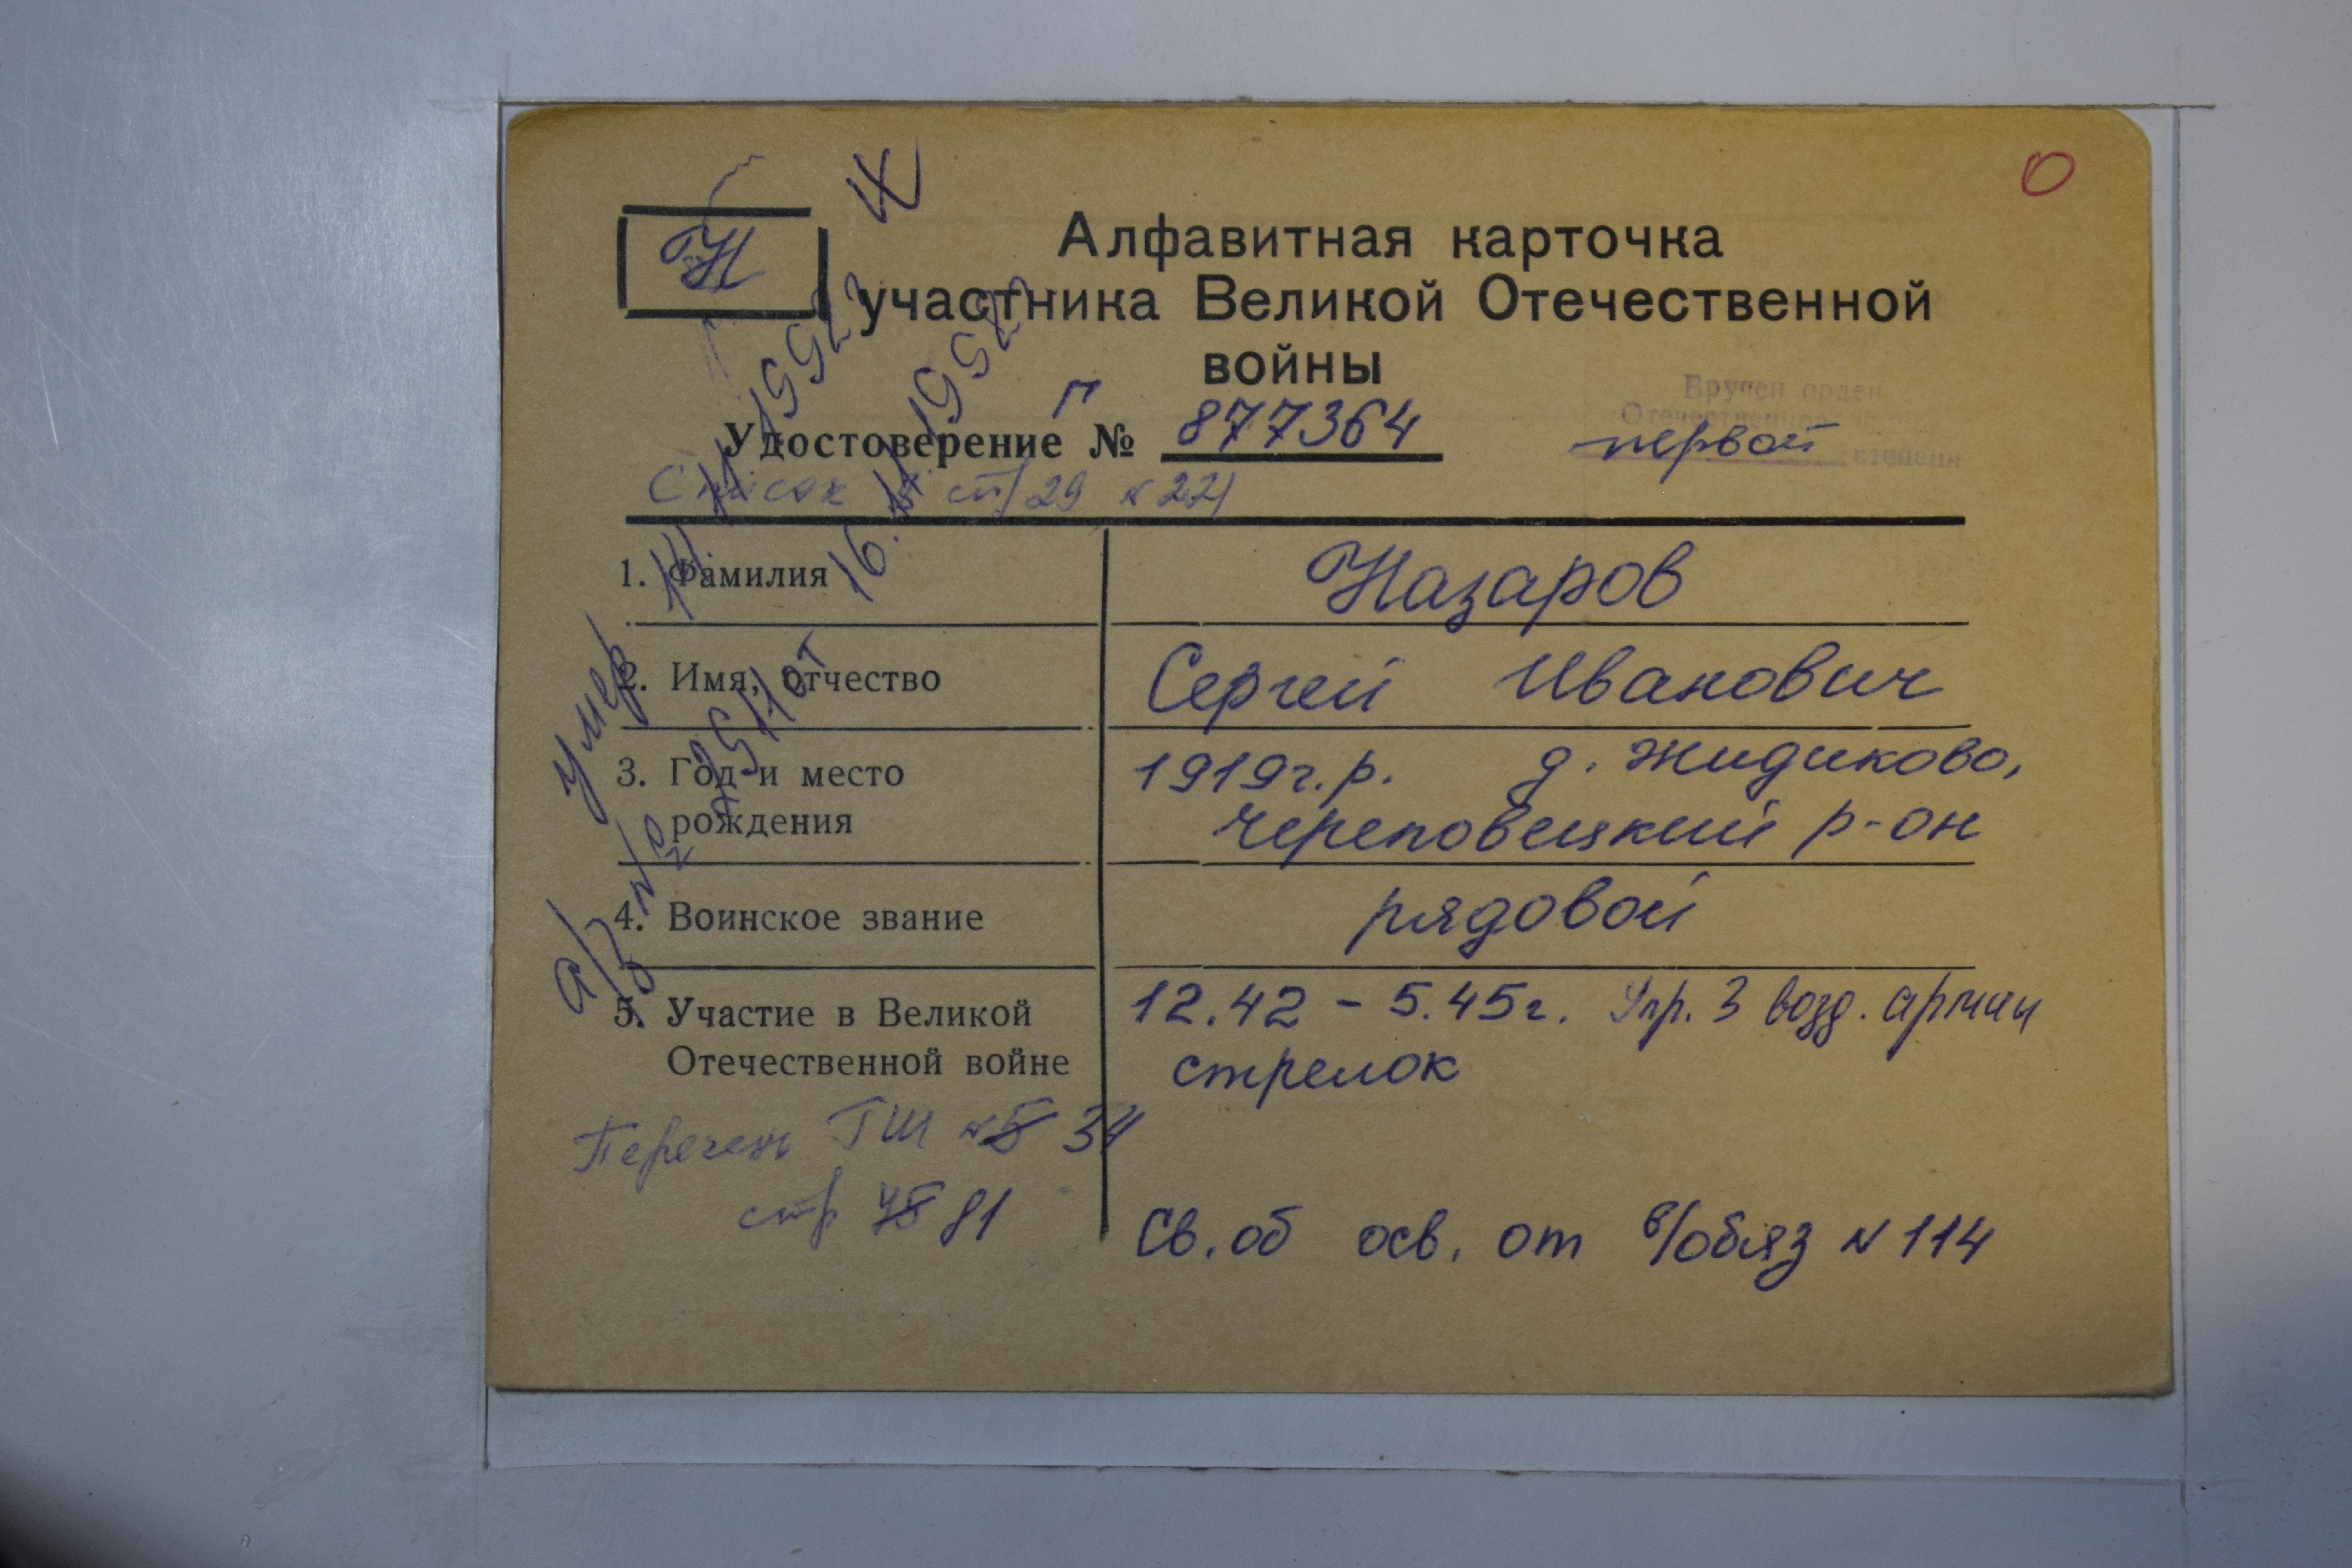 Н
Алфавитная карточка
участника Великой Отечественной
войны
Вручен орден
Отечественной
Удостоверение № Г 877364
первой степени
Список стр 29 № 221
1. Фамилия Назаров
2. Имя, отчество Сергей Иванович
3. Год и место рождения 1919г.р. д. Жидиково,
Череповецкий р-он
4. Воинское звание рядовой
5. Участие в Великой Отечественной войне 12.42 - 5.45г. Упр. 3 возд. армии
стрелок
Перечень ГШ №5 34
стр 81
Св. об осв. от в/обяз N 114
умер 1992г
а/з № от 16. 1992г